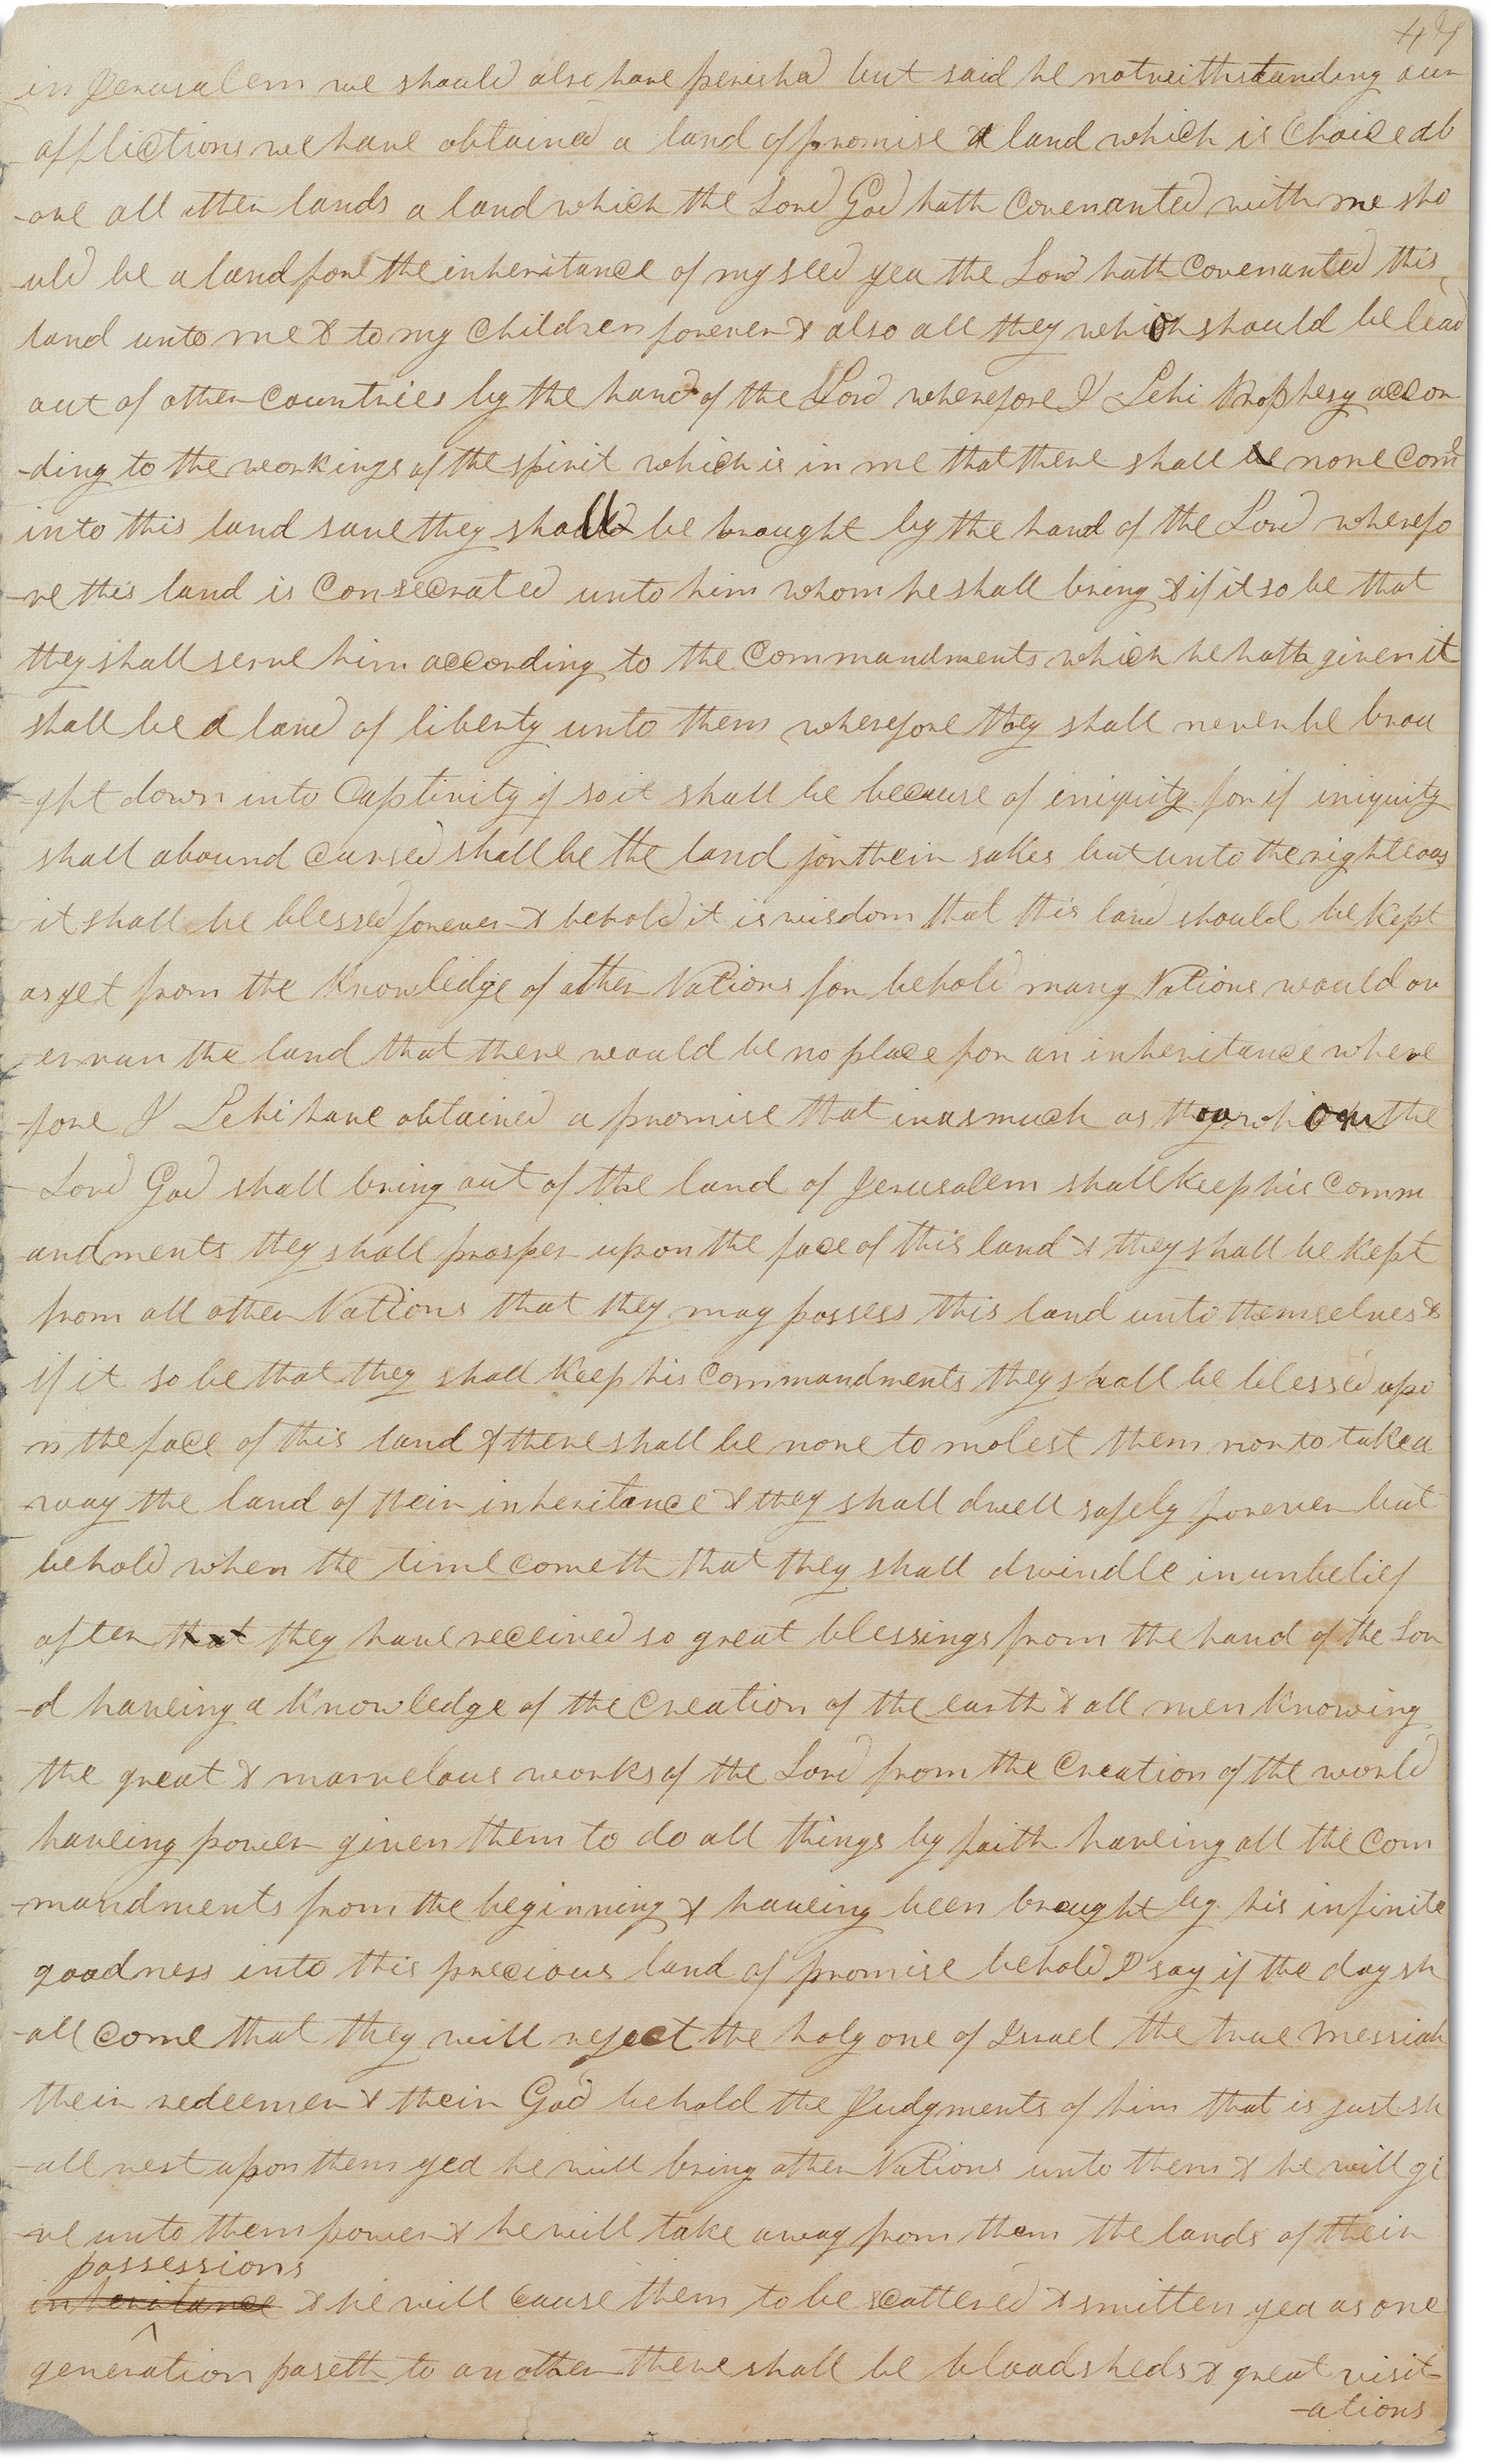 47
in Jerusalem we should also have perished but said he notwithstanding our
afflictions we have obtained a land of promise a land which is Choice ab
-ove all other lands a land which the Lord God hath Covenanted with me sho
-uld be a land fore the inheritance of my seed yea the Lord hath Covenanted this
land unto me & to my Children forever & also all they which should be lead
out of other Countries by the hand of the Lord wherefore I Lehi Prophesy accor
-ding to the workings of the spirit which is in me that there shall be none come
into this land save they shall be brought by the hand of the Lord wherefo
-re this land is Consecrated unto him whom he shall bring & if it so be that
they shall serve him according to the Commandments which he hath given it
shall be a land of liberty unto them wherefore they shall never be brou
-ght down into Captivity if so it shall be because of iniquity for if iniquity
shall abound Cursed shall be the land for their sakes but unto the righteous
it shall be blessed forever & behold it is wisdom that this land should be kept
as yet from the Knowledge of other Nations for behold many Nations would ov
-errun the land that there would be no place for an inheritance where
-fore I Lehi have obtained a promise that inasmuch as they which the
Lord God shall bring out of the land of Jerusalem shall keep his Comm
-andments they shall prosper upon the face of this land & they shall be Kept
from all other Nations that they may possess this land unto themselves &
if it so be that they shall Keep his Commandments they shall be blessed upo
n the face of this land & there shall be none to molest them nor to take a
-way the land of their inheritance & they shall dwell safely forever but
behold when the time cometh that they shall dwindle in unbelief
after that they have received so great blessings from the hand of the Lor
-d haveing a Knowledge of the Creation of the earth & all men Knowing
the great & marvelous works of the Lord from the Creation of the world
haveing power given them to do all things by faith haveing all the Com
-mandments from the beginning & haveing been brought by his infinite
goodness into this precious land of promise behold I say if the day sh
-all come that they will reject the holy one of Israel the true Messiah
their redeemer & their God behold the Judgments of him that is just sh
-all rest upon them yea he will bring other Nations unto them & he will gi
-ve unto them power & he will take away from them the lands of their
possessions
inheritance & he will Cause them to be scattered & smitten yea as one
generation paseth to another there shall be bloodsheds & great visit
-ations